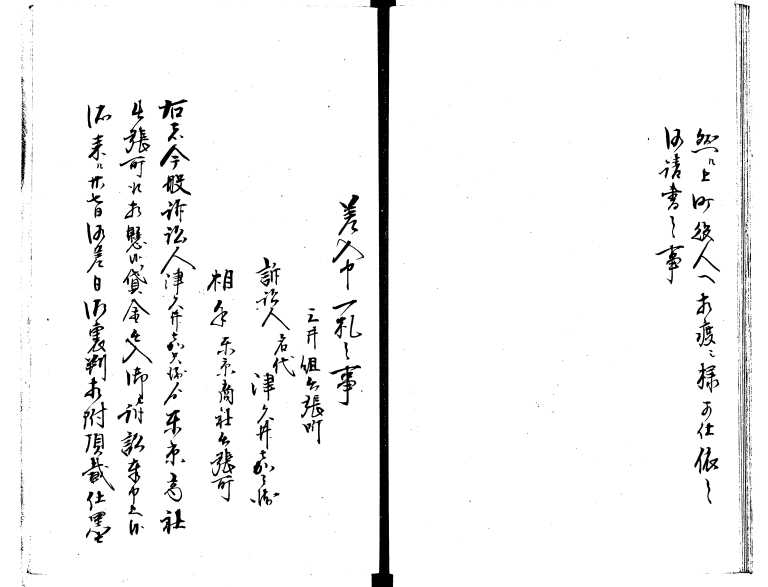 然ル上町役人へ相渡シ候様可仕依之
御請書之事
差入申一札之事
三井組出張所
訴訟人 名代
津久井嘉兵衛
相手 東京商社出張所
右者今般訴訟人津久井嘉兵衛 東京商社
出張所江相懸り貸金出入御訴訟奉申上候
処来ル廿七日御差日御裏判相附頂戴仕